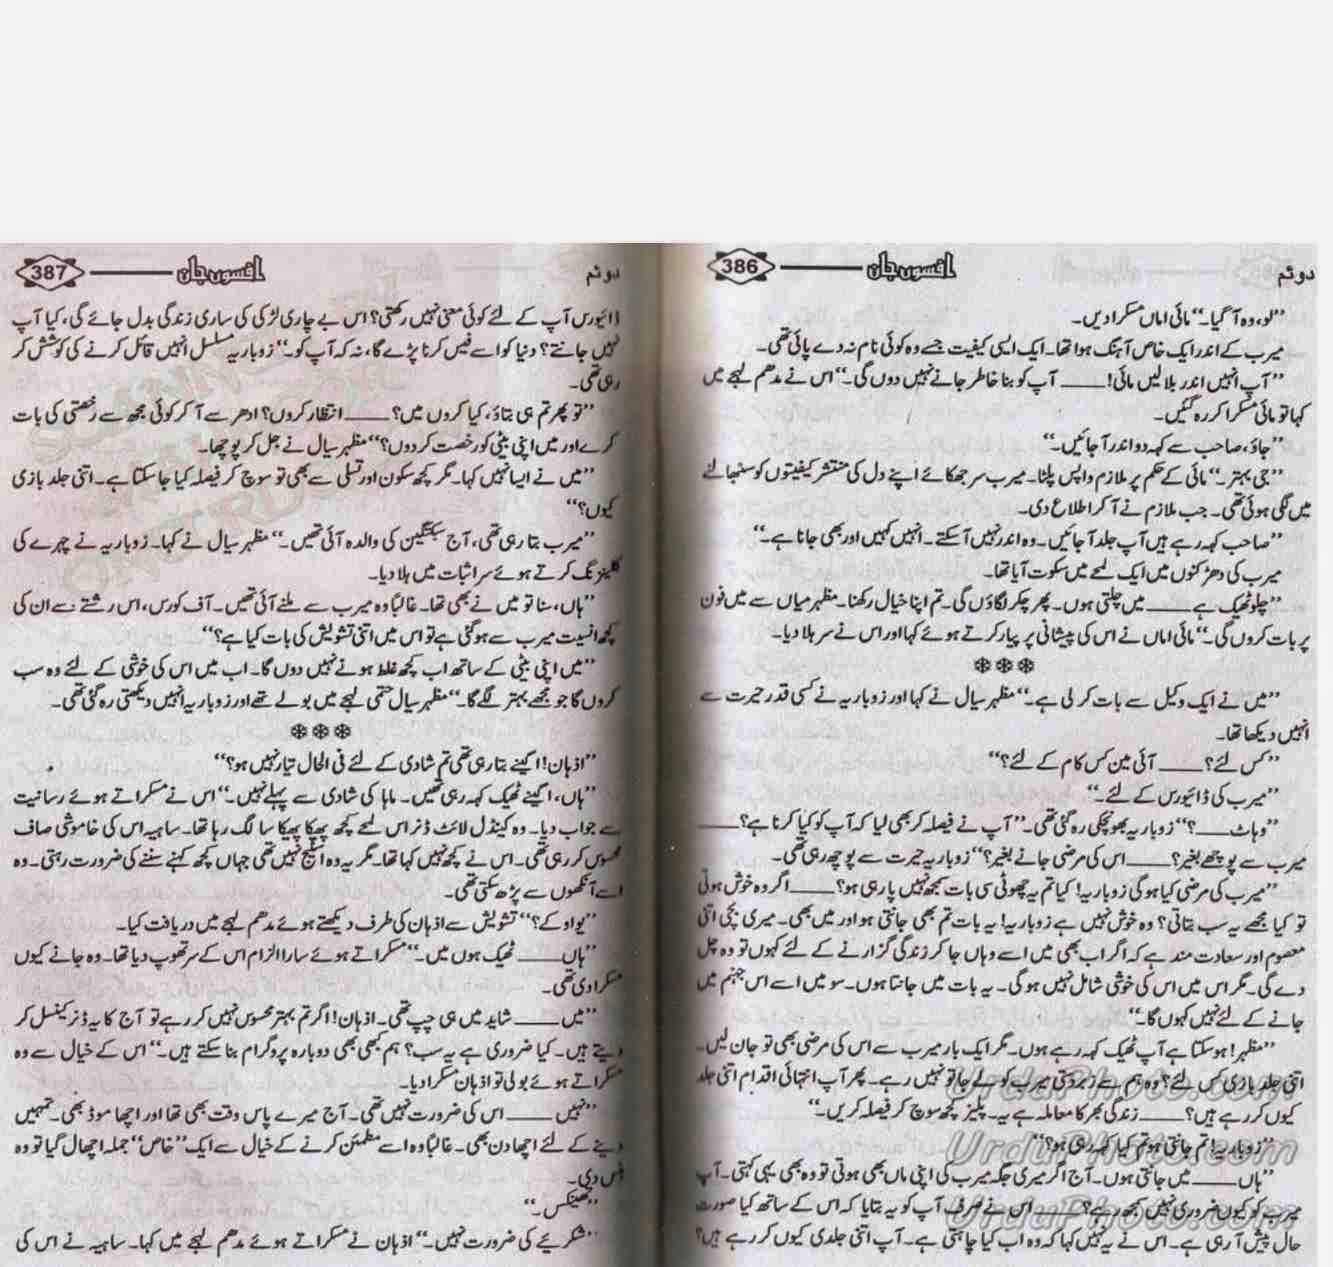 دوئم افسوں جان 386
”لو، وہ آ گیا۔“ مائی اماں مسکرا دیں۔
میرب کے اندر ایک خاص آہنگ ہوا تھا۔ ایک ایسی کیفیت جسے وہ کوئی نام نہ دے پائی تھی۔
”آپ انہیں اندر بلا لیں مائی! ____ آپ کو بنا خاطر جانے نہیں دوں گی۔“ اس نے مدھم لہجے میں
کہا تو مائی مسکرا کر رہ گئیں۔
”جاؤ، صاحب سے کہہ دو اندر آ جائیں۔“
”جی بہتر۔“ مائی کے حکم پر ملازم واپس پلٹا۔ میرب سر جھکائے اپنے دل کی منتشر کیفیتوں کو سنبھالنے
میں لگی ہوئی تھی۔ جب ملازم نے آ کر اطلاع دی۔
”صاحب کہہ رہے ہیں آپ جلد آ جائیں۔ وہ اندر نہیں آ سکتے۔ انہیں کہیں اور بھی جانا ہے۔“
میرب کی دھڑکنوں میں ایک لمحے میں سکوت آیا تھا۔
”چلو ٹھیک ہے ____ میں چلتی ہوں۔ پھر چکر لگاؤں گی۔ تم اپنا خیال رکھنا۔ مظہر میاں سے میں فون
پر بات کروں گی۔“ مائی اماں نے اس کی پیشانی پر پیار کرتے ہوئے کہا اور اس نے سر ہلا دیا۔
❄❄❄
”میں نے ایک وکیل سے بات کر لی ہے۔“ مظہر سیال نے کہا اور زوباریہ نے کسی قدر حیرت سے
انہیں دیکھا تھا۔
”کس لئے؟ ____ آئی مین کس کام کے لئے؟“
”میرب کی ڈائیورس کے لئے۔“
”وہاٹ ____؟“ زوباریہ بھونچکی رہ گئی تھی۔ ”آپ نے فیصلہ کر بھی لیا کہ آپ کو کیا کرنا ہے؟ ____
میرب سے پوچھے بغیر؟ ____ اس کی مرضی جانے بغیر؟“ زوباریہ حیرت سے پوچھ رہی تھی۔
”میرب کی مرضی کیا ہو گی زوباریہ! کیا تم یہ چھوٹی سی بات سمجھ نہیں پا رہی ہو؟ ____ اگر وہ خوش ہوتی
تو کیا مجھے یہ سب بتاتی؟ وہ خوش نہیں ہے زوباریہ! یہ بات تم بھی جانتی ہو اور میں بھی۔ میری بچی اتنی
معصوم اور سعادت مند ہے کہ اگر اب بھی میں اسے وہاں جا کر زندگی گزارنے کے لئے کہوں تو وہ چل
دے گی۔ مگر اس میں اس کی خوشی شامل نہیں ہو گی۔ یہ بات میں جانتا ہوں۔ سو میں اسے اس جہنم میں
جانے کے لئے نہیں کہوں گا۔“
”مظہر! ہو سکتا ہے آپ ٹھیک کہہ رہے ہوں۔ مگر ایک بار میرب سے اس کی مرضی بھی تو جان لیں۔
اتنی جلد بازی کس لئے؟ وہ ہم سے زبردستی میرب کو لے جا تو نہیں رہے۔ پھر آپ انتہائی اقدام اتنی جلد
کیوں کر رہے ہیں؟ ____ زندگی بھر کا معاملہ ہے یہ۔ پلیز کچھ سوچ کر فیصلہ کریں۔“
”زوباریہ! تم جانتی ہو تم کیا کہہ رہی ہو؟“
”ہاں ____ میں جانتی ہوں۔ آج اگر میری جگہ میرب کی اپنی ماں بھی ہوتی تو وہ بھی یہی کہتی۔ آپ
میرب کو کیوں ضروری نہیں سمجھ رہے؟ ____ اس نے صرف آپ کو یہ بتایا کہ اس کے ساتھ کیا صورت
حال پیش آ رہی ہے۔ اس نے یہ نہیں کہا کہ وہ اب کیا چاہتی ہے۔ آپ اتنی جلدی کیوں کر رہے ہیں؟
UrduPhoto.com
UrduPhoto.com
UrduPhoto.com
دوئم افسوں جان 387
ڈائیورس آپ کے لئے کوئی معنی نہیں رکھتی؟ اس بے چاری لڑکی کی ساری زندگی بدل جائے گی، کیا آپ
نہیں جانتے؟ دنیا کو اسے فیس کرنا پڑے گا، نہ کہ آپ کو۔“ زوباریہ مسلسل انہیں قائل کرنے کی کوشش کر
رہی تھی۔
”تو پھر تم ہی بتاؤ، کیا کروں میں؟ ____ انتظار کروں؟ ادھر سے آ کر کوئی مجھ سے رخصتی کی بات
کرے اور میں اپنی بیٹی کو رخصت کر دوں؟“ مظہر سیال نے جل کر پوچھا۔
”میں نے ایسا نہیں کہا۔ مگر کچھ سکون اور تسلی سے بھی تو سوچ کر فیصلہ کیا جا سکتا ہے۔ اتنی جلد بازی
کیوں؟“
”میرب بتا رہی تھی، آج سبکتگین کی والدہ آئی تھیں۔“ مظہر سیال نے کہا۔ زوباریہ نے چہرے کی
کلینزنگ کرتے ہوئے سر اثبات میں ہلا دیا۔
”ہاں، سنا تو میں نے بھی تھا۔ غالباً وہ میرب سے ملنے آئی تھیں۔ آف کورس، اس رشتے سے ان کی
کچھ انسیت میرب سے ہو گئی ہے تو اس میں اتنی تشویش کی بات کیا ہے؟“
”میں اپنی بیٹی کے ساتھ اب کچھ غلط ہونے نہیں دوں گا۔ اب میں اس کی خوشی کے لئے وہ سب
کروں گا جو مجھے بہتر لگے گا۔“ مظہر سیال حتمی لہجے میں بولے تھے اور زوباریہ انہیں دیکھتی رہ گئی تھی۔
❄❄❄
”اذہان! اکینے بتا رہی تھی تم شادی کے لئے فی الحال تیار نہیں ہو؟“
”ہاں، اکینے ٹھیک کہہ رہی تھیں۔ ماہا کی شادی سے پہلے نہیں۔“ اس نے مسکراتے ہوئے رسانیت
سے جواب دیا۔ وہ کینڈل لائٹ ڈنر اس لمحے کچھ پھیکا پھیکا سا لگ رہا تھا۔ ساہیہ اس کی خاموشی صاف
محسوس کر رہی تھی۔ اس نے کچھ نہیں کہا تھا۔ مگر یہ وہ اسٹیج نہیں تھی جہاں کچھ کہنے سننے کی ضرورت رہتی۔ وہ
اسے آنکھوں سے پڑھ سکتی تھی۔
”یو اوکے؟“ تشویش سے اذہان کی طرف دیکھتے ہوئے مدھم لہجے میں دریافت کیا۔
”ہاں ____ ٹھیک ہوں میں۔“ مسکراتے ہوئے سارا الزام اس کے سر تھوپ دیا تھا۔ وہ جانے کیوں
مسکرا دی تھی۔
”میں ____ شاید میں ہی چپ تھی۔ اذہان! اگر تم بہتر محسوس نہیں کر رہے تو آج کا یہ ڈنر کینسل کر
دیتے ہیں۔ کیا ضروری ہے یہ سب؟ ہم کبھی بھی دوبارہ پروگرام بنا سکتے ہیں۔“ اس کے خیال سے وہ
مسکراتے ہوئے بولی تو اذہان مسکرا دیا۔
”نہیں ____ اس کی ضرورت نہیں تھی۔ آج میرے پاس وقت بھی تھا اور اچھا موڈ بھی۔ تمہیں
دینے کے لئے اچھا دن بھی۔ غالباً وہ اسے مطمئن کرنے کے خیال سے ایک ”خاص“ جملہ اچھال گیا تو وہ
ہنس دی۔
”تھینکس۔“
”شکریے کی ضرورت نہیں۔“ اذہان نے مسکراتے ہوئے مدھم لہجے میں کہا۔ ساہیہ نے اس کی